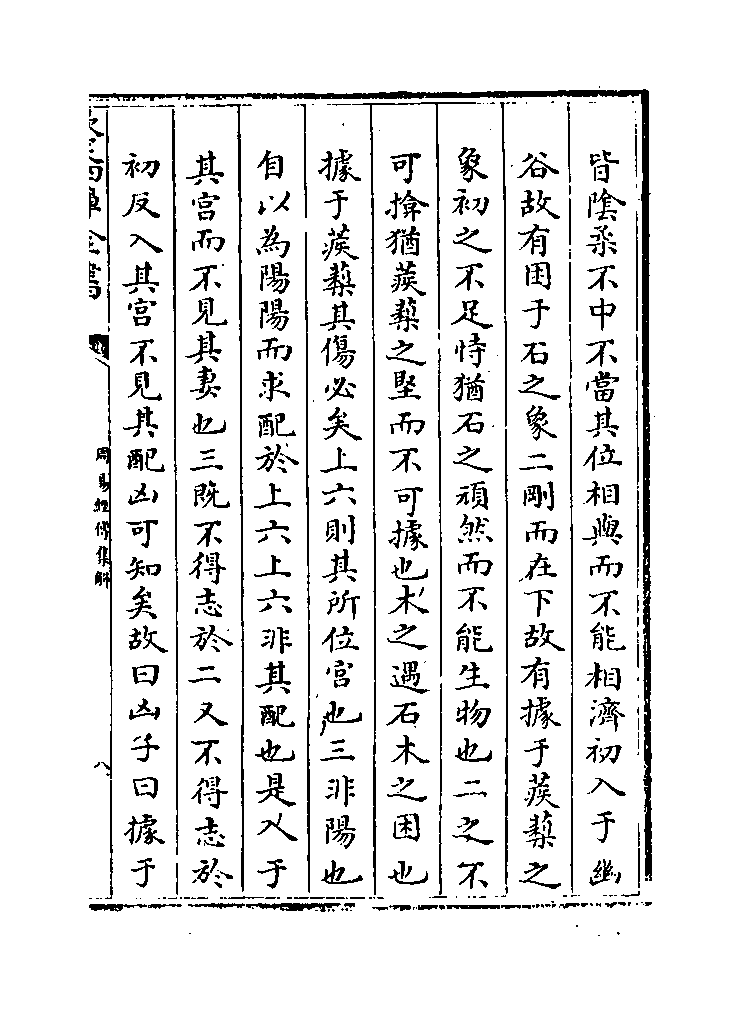 皆陰柔不中不當其位相與而不能相濟初入于幽
谷故有困于石之象二剛而在下故有據于蒺蔾之
象初之不足恃猶石之頑然而不能生物也二之不
可揜猶蒺蔾之堅而不可據也木之遇石木之困也
據于蒺蔾其傷必矣上六則其所位宮也三非陽也
自以為陽陽而求配於上六上六非其配也是入于
其宮而不見其妻也三既不得志於二又不得志於
初反入其宮不見其配凶可知矣故曰凶子曰據于
欽定四庫全書
周易經傳集解
八